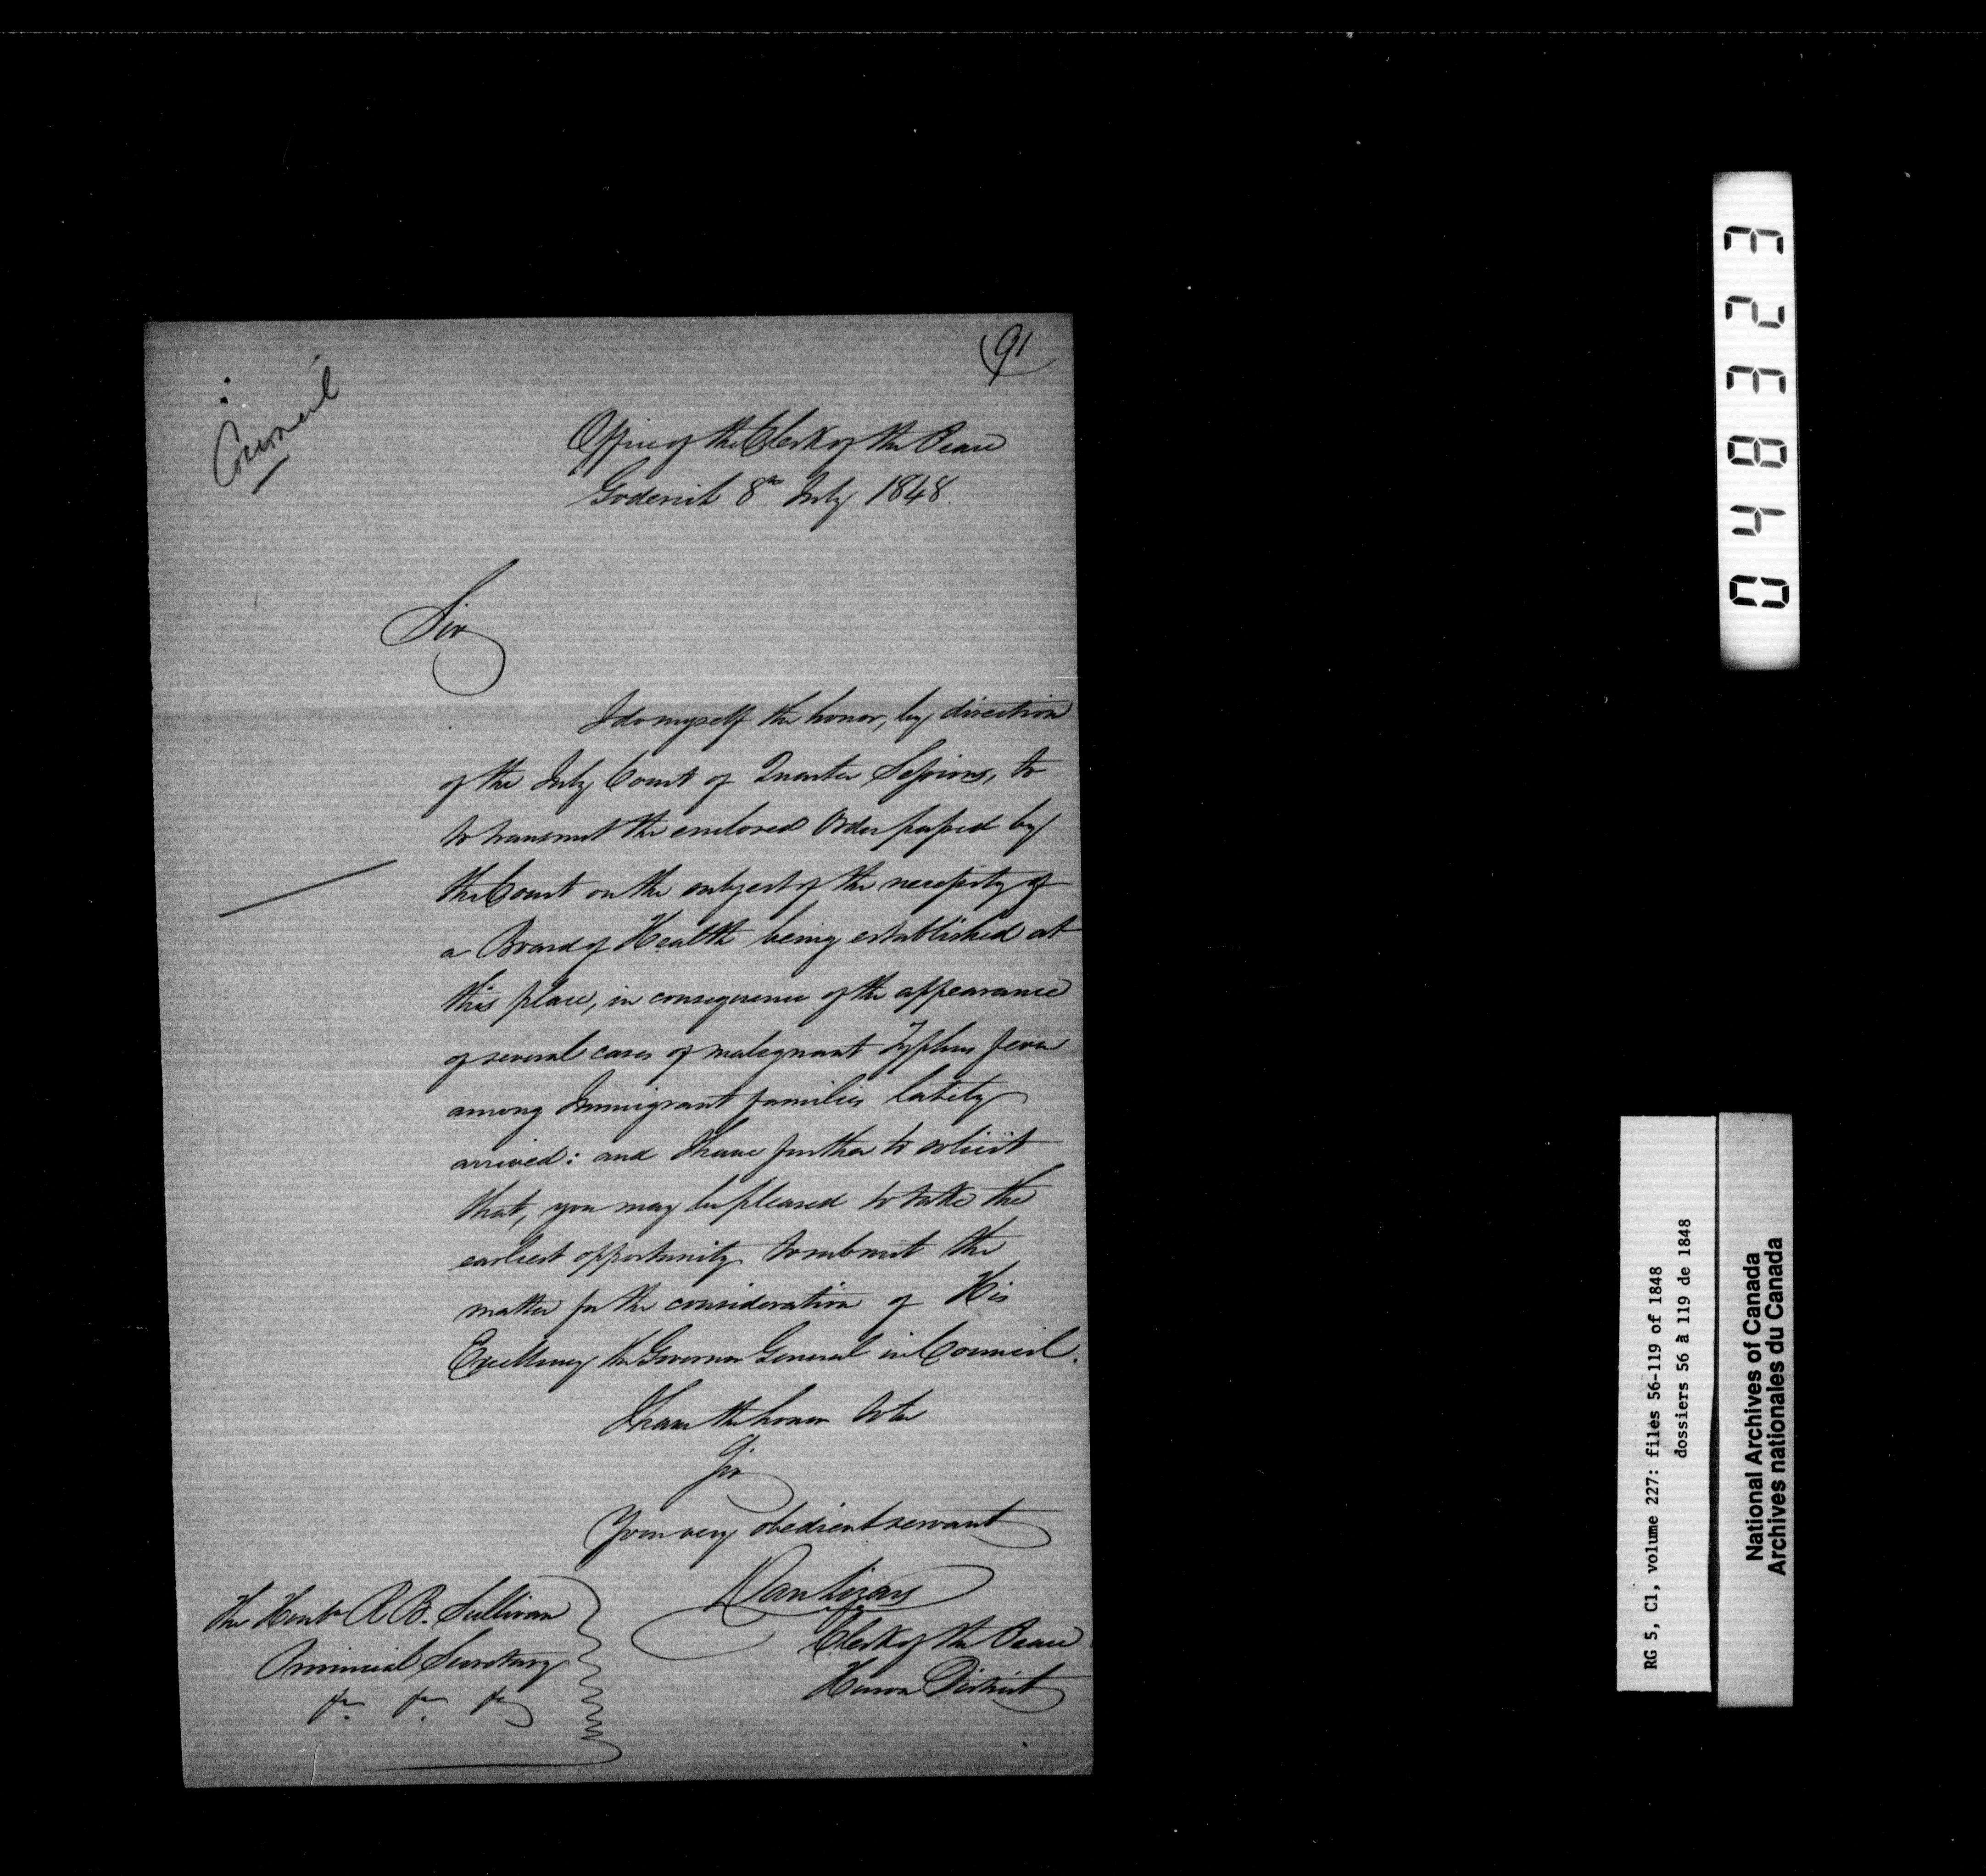 91
Council
Office of the Clerk of the Peace
Goderich 8th July 1848.
Sir
I do myself the honor, by direction
of the July Court of Quarter Sessions, to
to transmit the enclosed Order passed by
the Court on the subject of the necessity of
a Board of Health being established at
this place, in consequence of the appearance
of several cases of malignant Typhus fever
among Immigrant families lately
arrived: and I have further to solicit
that, you may be pleased to take the
earliest opportunity to submit the
matter for the consideration of His
Excellency the Governor General in Council.
I have the honor to be
Sir
Your very obedient servant
Dan Lizars
Clerk of the Peace
Huron District
The Honble R. B. Sullivan
Provincial Secretary
&c. &c. &c.
323840
RG 5, C1, volume 227: files 56-119 of 1848
dossiers 56 à 119 de 1848
National Archives of Canada
Archives nationales du Canada